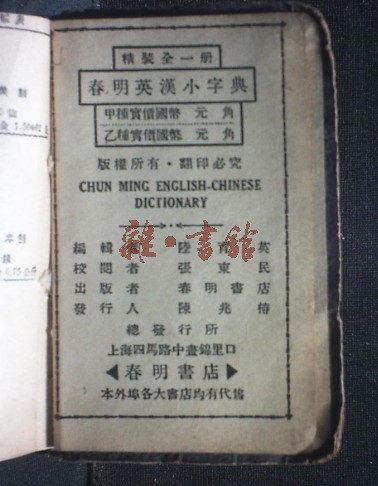 精裝全一册
春明英漢小字典
甲種實價國幣 元 角
乙種實價國幣 元 角
版權所有・翻印必究
CHUN MING ENGLISH-CHINESE
DICTIONARY
編輯者 陸 英
校閱者 張東民
出版者 春明書店
發行人 陳兆椿
總發行所
上海四馬路中晝錦里口
春明書店
本外埠各大書店均有代售
雜·書館